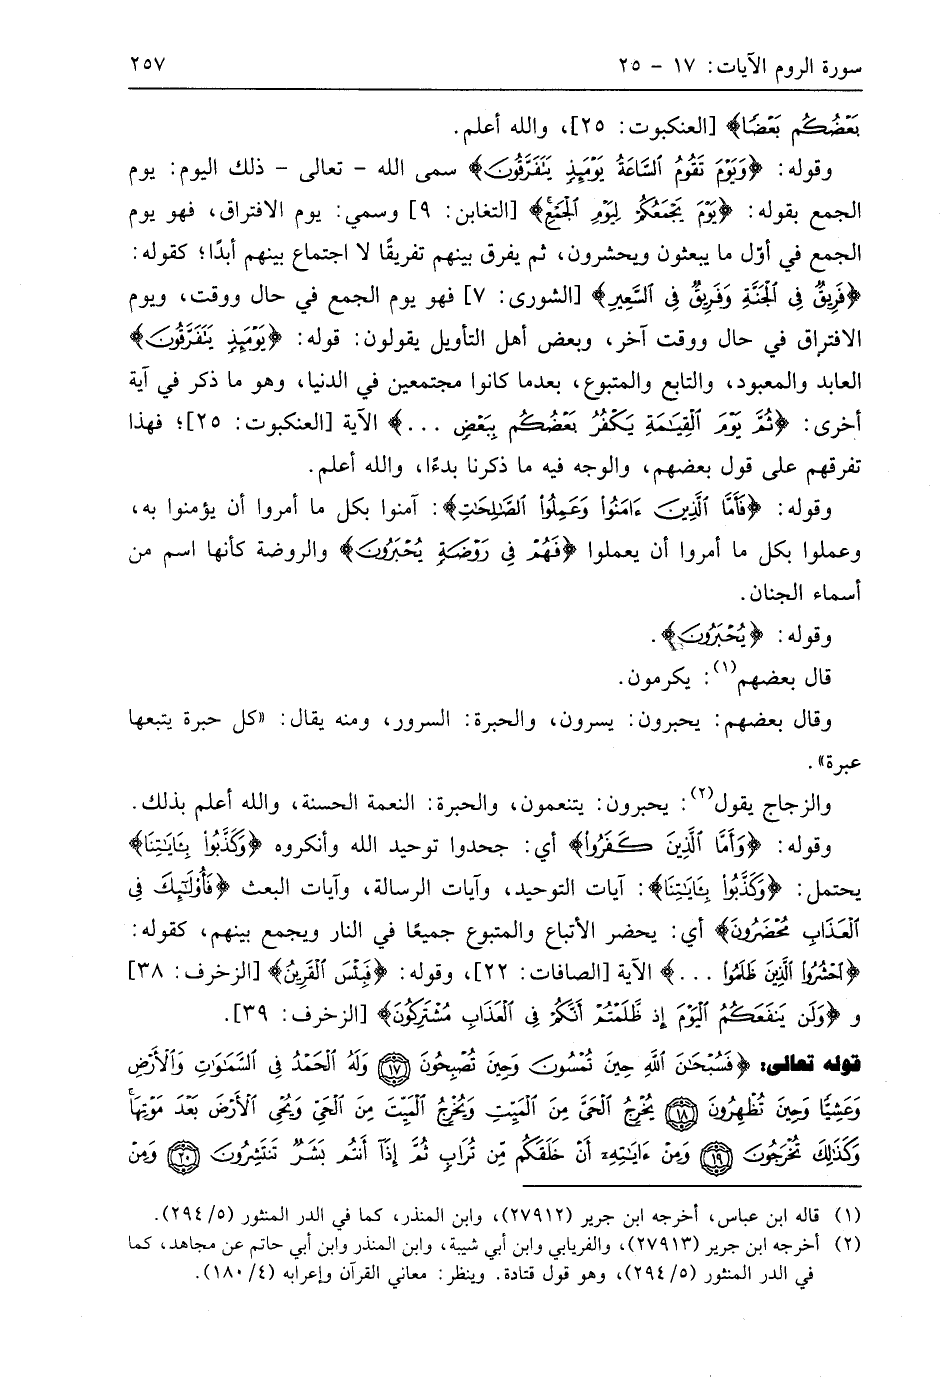 سورة الروم الآيات: ١٧ - ٢٥
٢٥٧
بَعْضُكُم بَعْضًا﴾ [العنكبوت: ٢٥]، والله أعلم.
وقوله: ﴿وَيَوْمَ تَقُومُ ٱلسَّاعَةُ يَوْمَئِذٍ يَتَفَرَّقُونَ﴾ سمى الله - تعالى - ذلك اليوم: يوم
الجمع بقوله: ﴿يَوْمَ يَجْمَعُكُمْ لِيَوْمِ ٱلْجَمْعِ﴾ [التغابن: ٩] وسمي: يوم الافتراق، فهو يوم
الجمع في أوّل ما يبعثون ويحشرون، ثم يفرق بينهم تفريقًا لا اجتماع بينهم أبدًا؛ كقوله:
﴿فَرِيقٌ فِى ٱلْجَنَّةِ وَفَرِيقٌ فِى ٱلسَّعِيرِ﴾ [الشورى: ٧] فهو يوم الجمع في حال ووقت، ويوم
الافتراق في حال ووقت آخر، وبعض أهل التأويل يقولون: قوله: ﴿يَوْمَئِذٍ يَتَفَرَّقُونَ﴾
العابد والمعبود، والتابع والمتبوع، بعدما كانوا مجتمعين في الدنيا، وهو ما ذكر في آية
أخرى: ﴿ثُمَّ يَوْمَ ٱلْقِيَٰمَةِ يَكْفُرُ بَعْضُكُم بِبَعْضٍ ...﴾ الآية [العنكبوت: ٢٥]؛ فهذا
تفرقهم على قول بعضهم، والوجه فيه ما ذكرنا بدءًا، والله أعلم.
وقوله: ﴿فَأَمَّا ٱلَّذِينَ ءَامَنُوا۟ وَعَمِلُوا۟ ٱلصَّٰلِحَٰتِ﴾: آمنوا بكل ما أمروا أن يؤمنوا به،
وعملوا بكل ما أمروا أن يعملوا ﴿فَهُمْ فِى رَوْضَةٍ يُحْبَرُونَ﴾ والروضة كأنها اسم من
أسماء الجنان.
وقوله: ﴿يُحْبَرُونَ﴾.
قال بعضهم(١): يكرمون.
وقال بعضهم: يحبرون: يسرون، والحبرة: السرور، ومنه يقال: «كل حبرة يتبعها
عبرة».
والزجاج يقول(٢): يحبرون: يتنعمون، والحبرة: النعمة الحسنة، والله أعلم بذلك.
وقوله: ﴿وَأَمَّا ٱلَّذِينَ كَفَرُوا۟﴾ أي: جحدوا توحيد الله وأنكروه ﴿وَكَذَّبُوا۟ بِـَٔايَٰتِنَا﴾
يحتمل: ﴿وَكَذَّبُوا۟ بِـَٔايَٰتِنَا﴾: آيات التوحيد، وآيات الرسالة، وآيات البعث ﴿فَأُو۟لَٰٓئِكَ فِى
ٱلْعَذَابِ مُحْضَرُونَ﴾ أي: يحضر الأتباع والمتبوع جميعًا في النار ويجمع بينهم، كقوله:
﴿ٱحْشُرُوا۟ ٱلَّذِينَ ظَلَمُوا۟ ...﴾ الآية [الصافات: ٢٢]، وقوله: ﴿فَبِئْسَ ٱلْقَرِينُ﴾ [الزخرف: ٣٨]
و ﴿وَلَن يَنفَعَكُمُ ٱلْيَوْمَ إِذ ظَّلَمْتُمْ أَنَّكُمْ فِى ٱلْعَذَابِ مُشْتَرِكُونَ﴾ [الزخرف: ٣٩].
قوله تعالى: ﴿فَسُبْحَٰنَ ٱللَّهِ حِينَ تُمْسُونَ وَحِينَ تُصْبِحُونَ ۝١٧ وَلَهُ ٱلْحَمْدُ فِى ٱلسَّمَٰوَٰتِ وَٱلْأَرْضِ
وَعَشِيًّا وَحِينَ تُظْهِرُونَ ۝١٨ يُخْرِجُ ٱلْحَىَّ مِنَ ٱلْمَيِّتِ وَيُخْرِجُ ٱلْمَيِّتَ مِنَ ٱلْحَىِّ وَيُحْىِ ٱلْأَرْضَ بَعْدَ مَوْتِهَا ۚ
وَكَذَٰلِكَ تُخْرَجُونَ ۝١٩ وَمِنْ ءَايَٰتِهِۦٓ أَنْ خَلَقَكُم مِّن تُرَابٍ ثُمَّ إِذَآ أَنتُم بَشَرٌ تَنتَشِرُونَ ۝٢٠ وَمِنْ
(١) قاله ابن عباس، أخرجه ابن جرير (٢٧٩١٢)، وابن المنذر، كما في الدر المنثور (٥/ ٢٩٤).
(٢) أخرجه ابن جرير (٢٧٩١٣)، والفريابي وابن أبي شيبة، وابن المنذر وابن أبي حاتم عن مجاهد، كما
في الدر المنثور (٥/ ٢٩٤)، وهو قول قتادة. وينظر: معاني القرآن وإعرابه (٤/ ١٨٠).